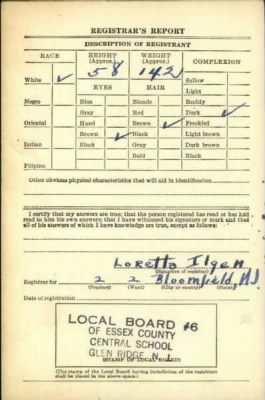 REGISTRAR'S REPORT
DESCRIPTION OF REGISTRANT
RACE HEIGHT (Approx.) WEIGHT (Approx.) COMPLEXION
White ✓ 5 8 142 Sallow
Light
EYES HAIR
Negro Blue Blonde Ruddy
Gray Red Dark ✓
Oriental Hazel Brown ✓ Freckled
Brown ✓ Black Light brown
Indian Black Gray Dark brown
Bald Black
Filipino
Other obvious physical characteristics that will aid in identification
I certify that my answers are true; that the person registered has read or has had
read to him his own answers; that I have witnessed his signature or mark and that
all of his answers of which I have knowledge are true, except as follows:
Loretta Ilgen
(Signature of registrar)
Registrar for 2 2 Bloomfield, N.J.
(Precinct) (Ward) (City or county) (State)
Date of registration
LOCAL BOARD #6
OF ESSEX COUNTY
CENTRAL SCHOOL
GLEN RIDGE, N. J.
(STAMP OF LOCAL BOARD)
(The stamp of the Local Board having jurisdiction of the registrant
shall be placed in the above space.)